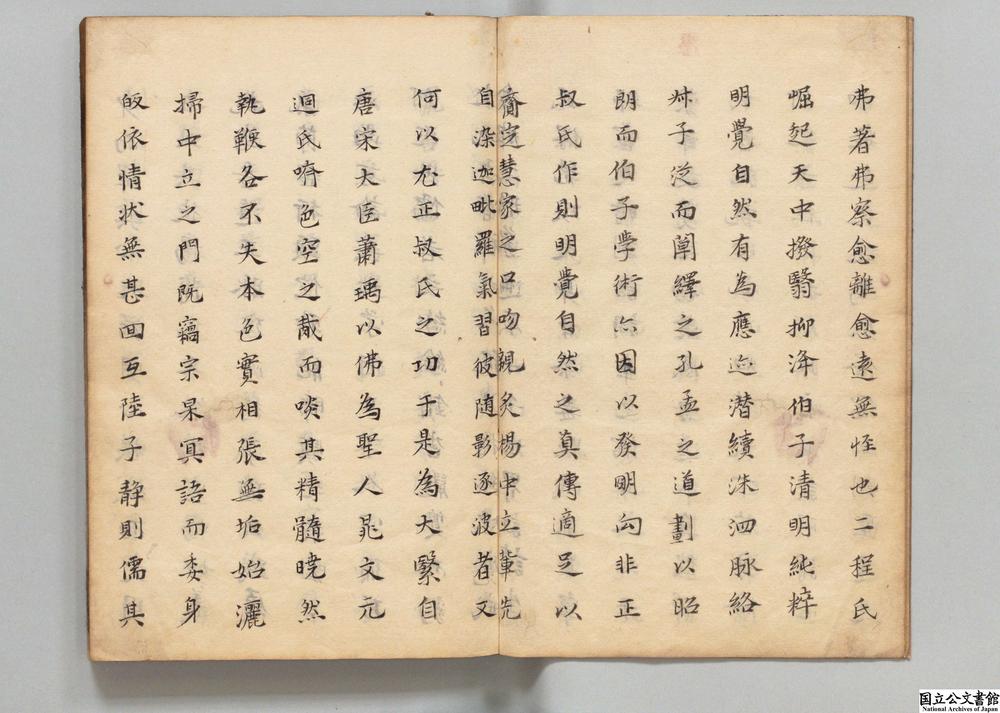 弗著弗察愈離愈遠無恠也二程氏
崛起天中撥翳抑洚伯子清明純粹
明覺自然有為應迹潛續洙泗脉絡
叔子泛而闡繹之孔孟之道劃以昭
朗而伯子學術亦因以發明向非正
叔氏作則明覺自然之真傳適足以
齎定慧家之口吻親炙楊中立輩先
自染迦毗羅氣習彼随影逐波者又
何以尤正叔氏之功于是為大緊自
唐宋大臣蕭瑀以佛為聖人晁文元
迴氏嚌色空之胾而啖其精髓曉然
執鞭各不失本色實相張無垢始灑
掃中立之門既竊宗杲冥語而委身
皈依情狀無甚囬互陸子静則儒其
国立公文書館
National Archives of Japan